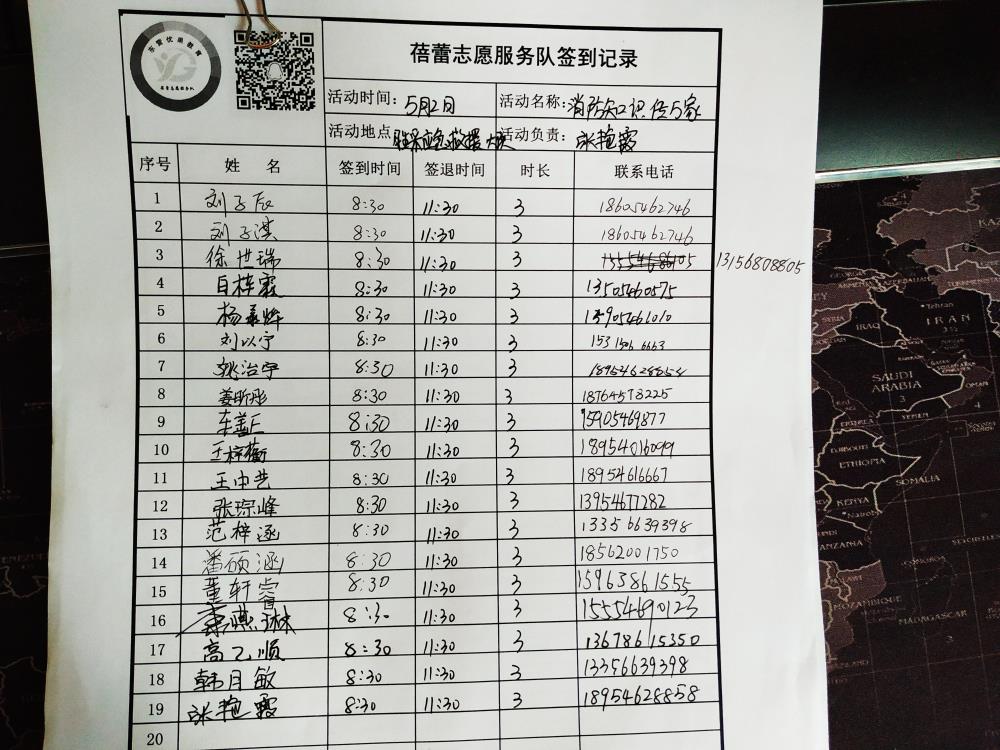 东营优果教育
蓓蕾志愿服务队
蓓蕾志愿服务队签到记录
活动时间: 5月2日 活动名称: 消防知识传万家
活动地点: 活动负责: 张艳霞
序号 姓 名 签到时间 签退时间 时长 联系电话
1 刘子辰 8:30 11:30 3 18605462746
2 刘子淇 8:30 11:30 3 18605462746
3 徐世瑞 8:30 11:30 3 13156808805
4 白梓霖 8:30 11:30 3 13505460575
5 杨 8:30 11:30 3 13905461010
6 刘以宁 8:30 11:30 3 153 1506 6663
7 姚治宇 8:30 11:30 3 18954628858
8 姜昕彤 8:30 11:30 3 18764573225
9 车益正 8:30 11:30 3 15905469877
10 王梓蘅 8:30 11:30 3 18954016099
11 王中艺 8:30 11:30 3 18954616667
12 张琮峰 8:30 11:30 3 13954677282
13 范梓涵 8:30 11:30 3 13356639398
14 潘硕涵 8:30 11:30 3 18562001750
15 董轩睿 8:30 11:30 3 15963861555
16 琪琳 8:30 11:30 3 15554690123
17 高乙顺 8:30 11:30 3 13678615350
18 韩月敏 8:30 11:30 3 13356639398
19 张艳霞 8:30 11:30 3 18954628858
20
Tehran
IRAN
IRAQ
SAUDI
ARABIA
OMAN
YEMEN
DJIBOUTI
ETHIOPIA
SOMALIA
KENYA
Nairobi
TANZANIA
SEYCHELLES
MOZAMBIQUE
MADAGASCAR